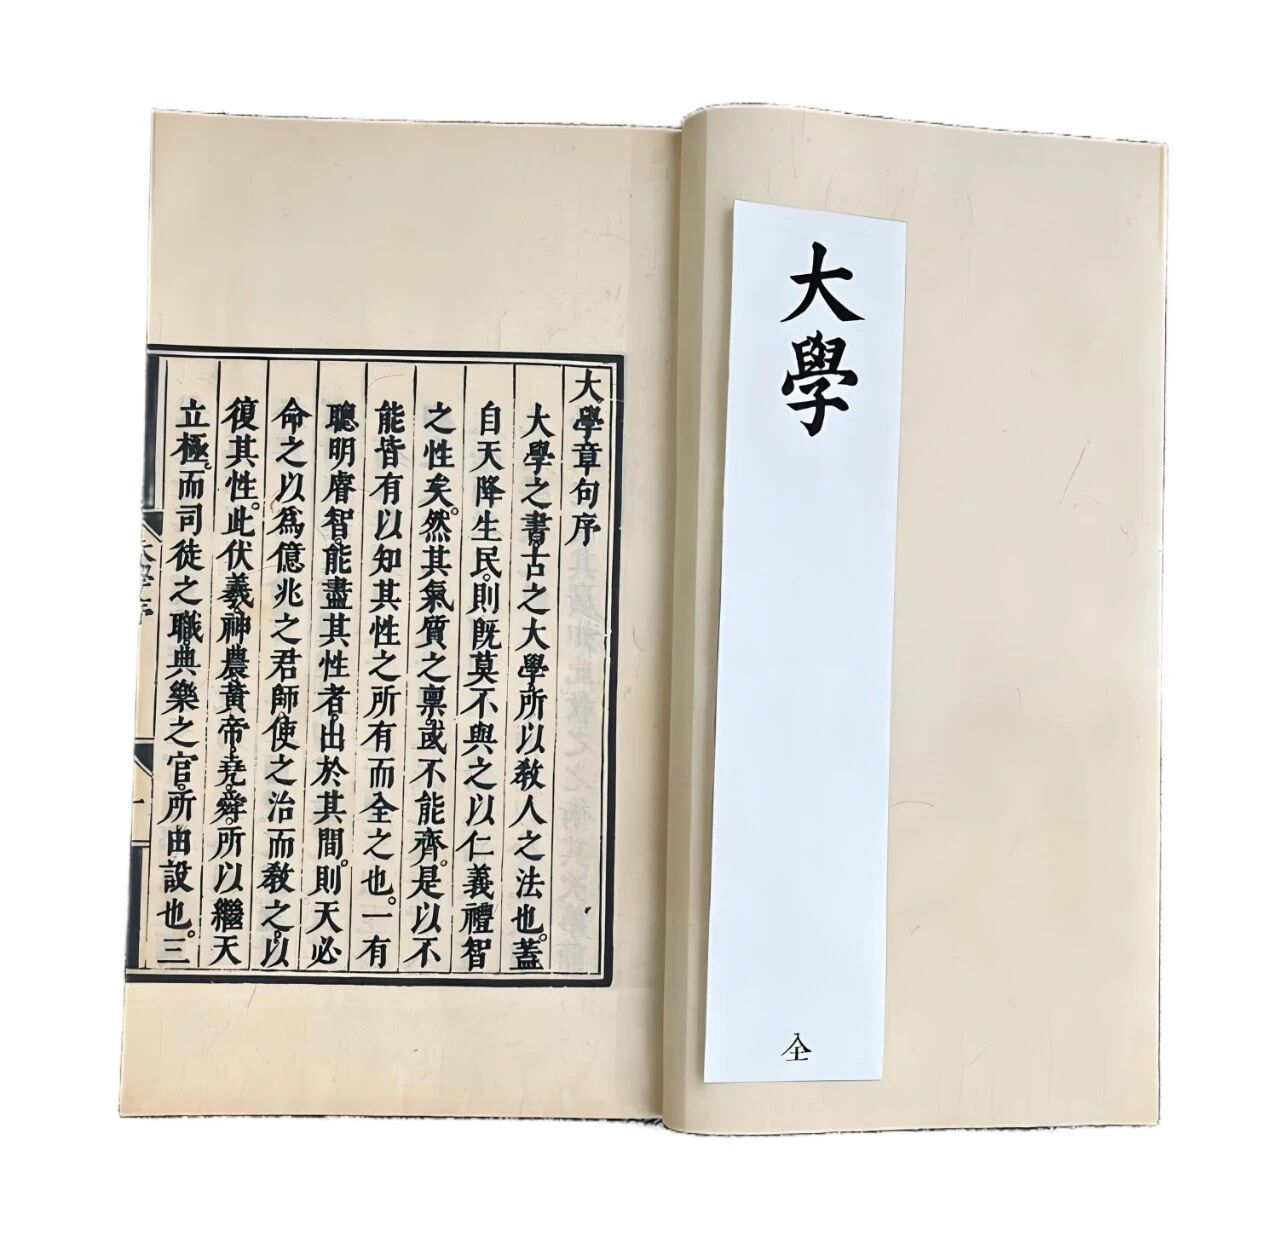 大學
全
大學章句序
大學之書。古之大學。所以敎人之法也。蓋
自天降生民。則旣莫不與之以仁義禮智
之性矣。然其氣質之禀。或不能齊。是以不
能皆有以知其性之所有而全之也。一有
聰明睿智。能盡其性者。出於其間。則天必
命之以爲億兆之君師。使之治而敎之。以
復其性。此伏羲。神農。黃帝。堯。舜。所以繼天
立極。而司徒之職。典樂之官。所由設也。三
大學序
一